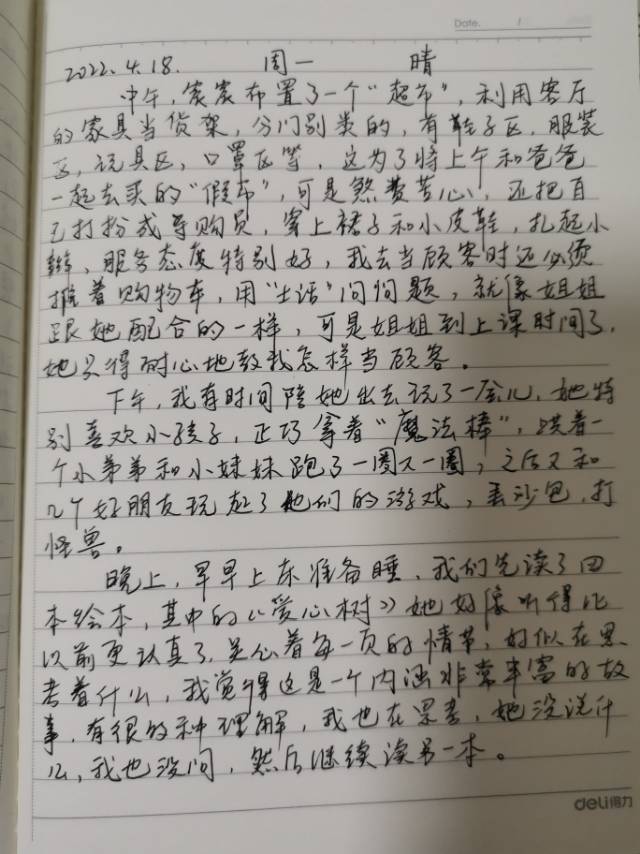 Date. /
2022.4.18. 周一 晴
中午,宸宸布置了一个“超市”,利用客厅
的家具当货架,分门别类的,有鞋子区,服装
区,玩具区,口罩区等,这为了将上午和爸爸
一起去买的“假币”,可是煞费苦心,还把自
己打扮成导购员,穿上裙子和小皮鞋,扎起小
辫,服务态度特别好,我去当顾客时还必须
推着购物车,用“生活”问问题,就像姐姐
跟她配合的一样,可是姐姐到上课时间了,
她只得耐心地教我怎样当顾客。
下午,我有时间陪她出去玩了一会儿,她特
别喜欢小孩子,正巧拿着“魔法棒”,哄着一
个小弟弟和小妹妹跑了一圈又一圈,之后又和
几个好朋友玩起了她们的游戏,丢沙包,打
怪兽。
晚上,早早上床准备睡,我们先读了四
本绘本,其中的《爱心树》她好像听得比
以前更认真了,关心着每一页的情节,好似在思
考着什么,我觉得这是一个内涵非常丰富的故
事,有很多种理解,我也在思考,她没说什
么,我也没问,然后继续读另一本。
deli得力